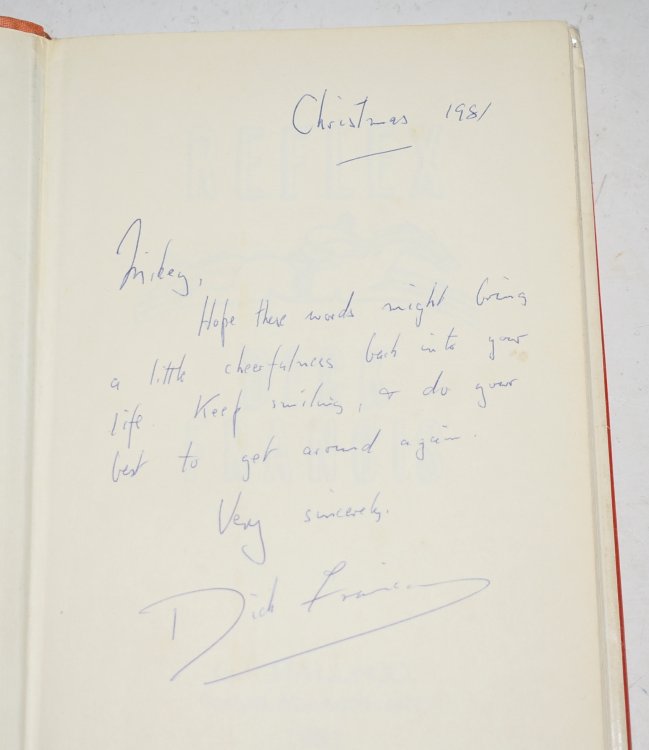 Christmas 1981
Mikey,
Hope these words might bring
a little cheerfulness back into your
life. Keep smiling, & do your
best to get around again.
Very sincerely.
Dick Francis